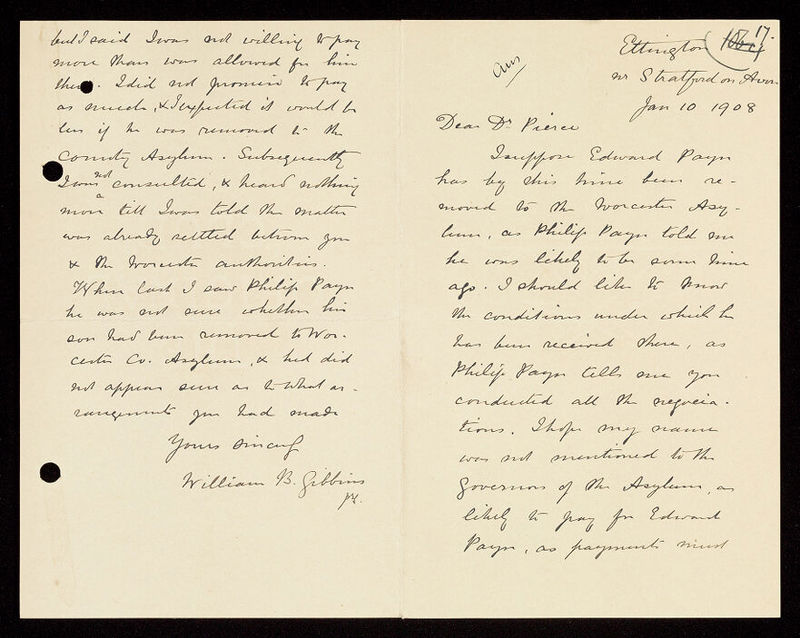 Ettington 106 17.
Ans
nr Stratford on Avon
Jan 10 1908
Dear Dr Pierce
I suppose Edward Payn
has by this time been re-
moved to the Worcester Asy-
lum, as Philip Payn told me
he was likely to be some time
ago. I should like to know
the conditions under which he
has been received there, as
Philip Payn tells me you
conducted all the negocia-
tions. I hope my name
was not mentioned to the
Governors of the Asylum, as
likely to pay for Edward
Payn, as payments must
but I said I was not willing to pay
more than was allowed for him
there. I did not promise to pay
as much, & I expected it would be
less if he was removed to the
County Asylum. Subsequently
I was not consulted, & heard nothing
more till I was told the matter
was already settled between you
& the Worcester authorities.
When last I saw Philip Payn
he was not sure whether his
son had been removed to Wor-
cester Co. Asylum, & he did
not appear sure as to what ar-
rangements you had made
Yours sincerely
William B. Gibbins